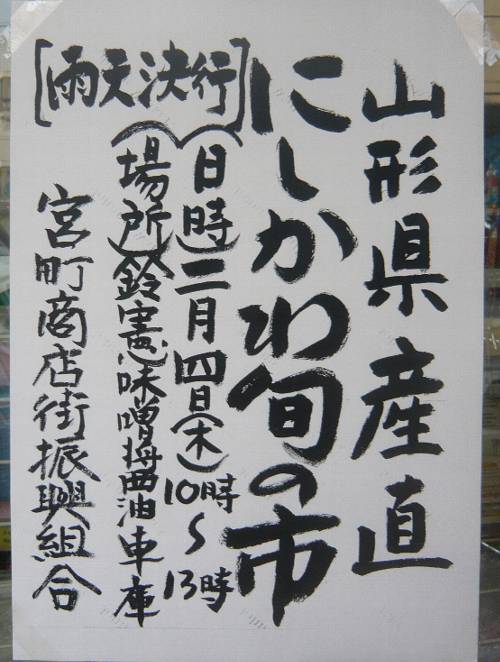 山形県産直
にしかわ旬の市
[雨天決行]
(日時)二月四日(木)10時～13時
(場所)鈴憲味噌醤油車庫
宮町商店街振興組合